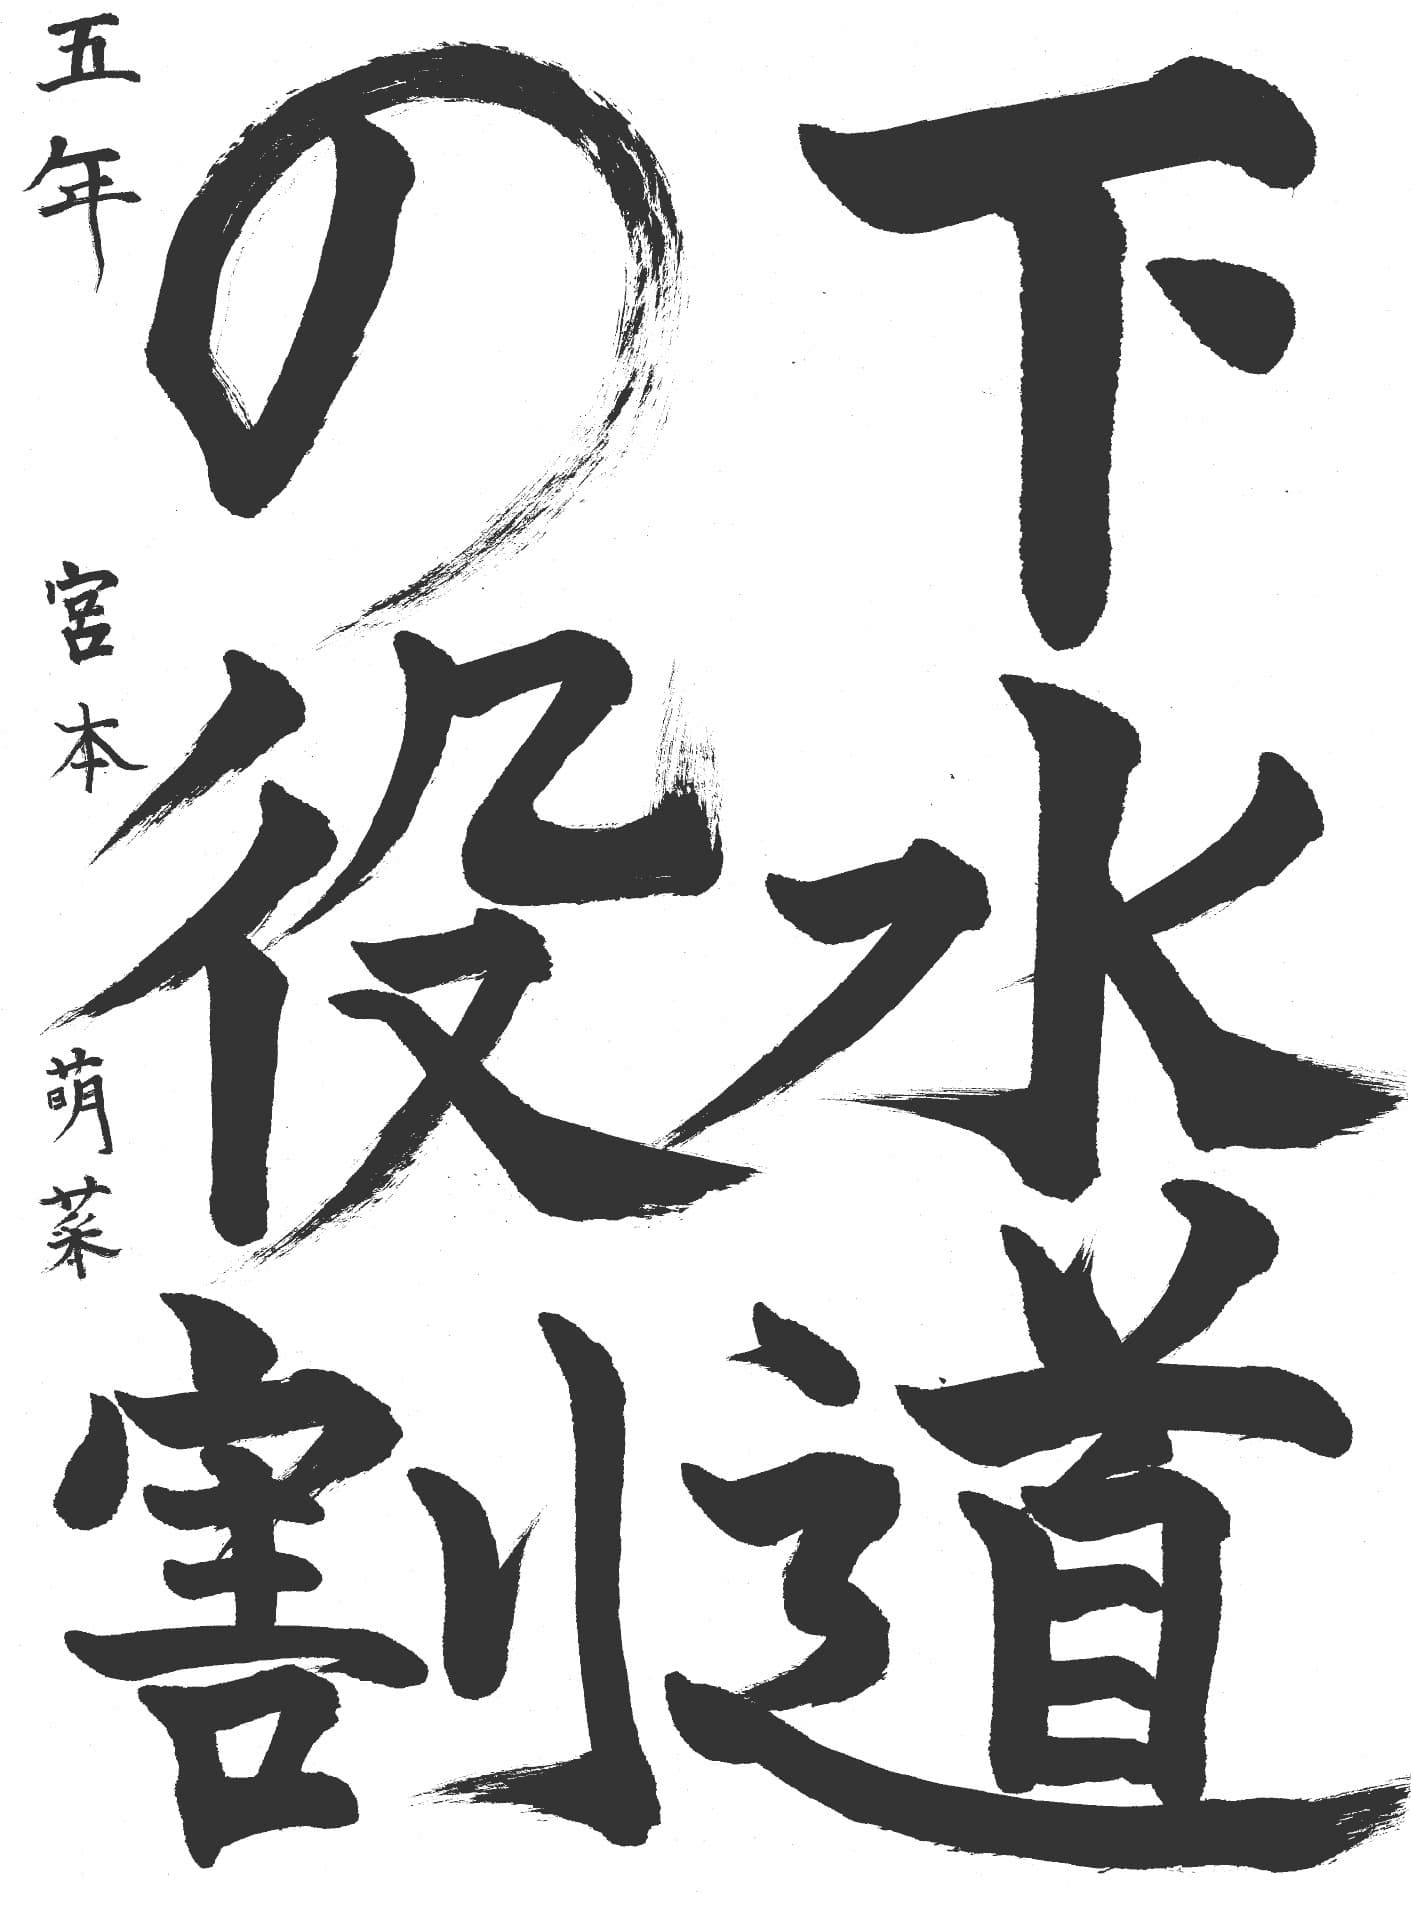 下水道
の役割
五年 宮本 萌菜